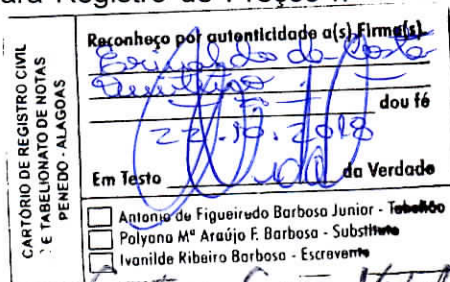 ara Registro de Preços n
CARTÓRIO DE REGISTRO CIVIL
E TABELIONATO DE NOTAS
PENEDO - ALAGOAS
Reconheço por autenticidade a(s) Firma(s)
da Costa
dou fé
22.10.2018
Em Testo da Verdade
Antonio de Figueiredo Barbosa Junior - Tabelião
Polyana Mª Araújo F. Barbosa - Substituta
Ivanilde Ribeiro Barbosa - Escrevente